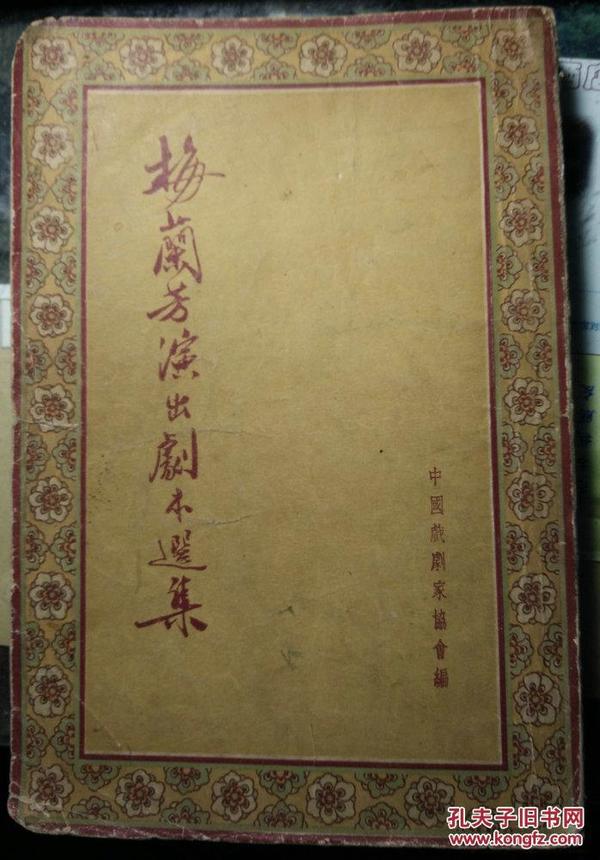 梅蘭芳演出劇本選集
中國戲劇家協會編
孔夫子旧书网
www.kongfz.com